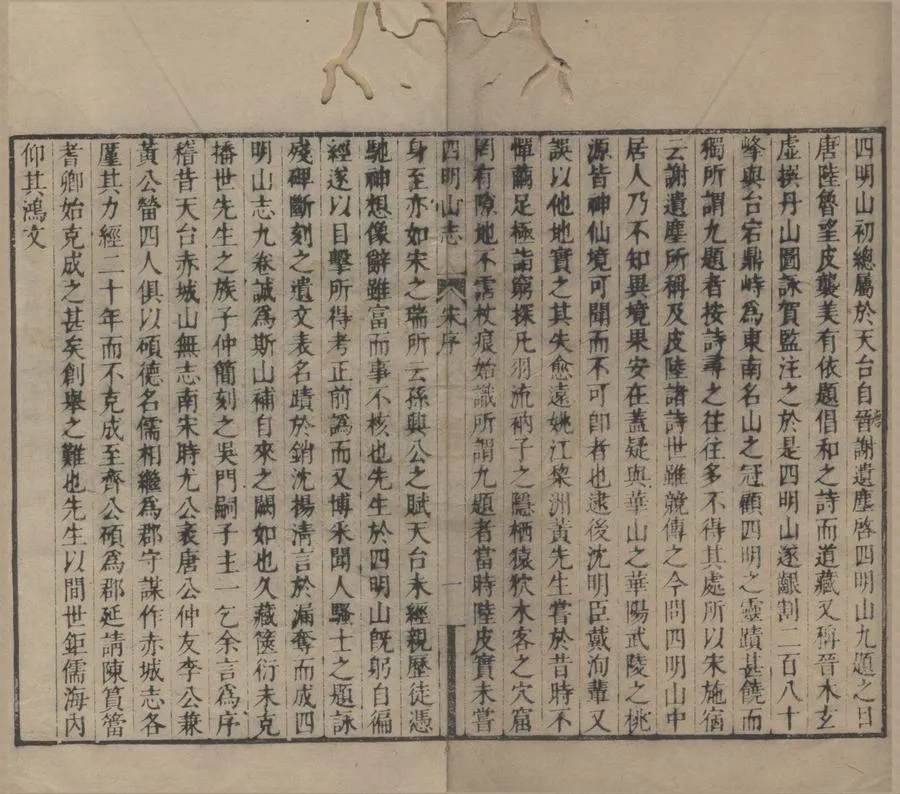 四明山初總屬於天台自晉謝遺塵啓四明山九題之目
唐陸魯望皮襲美有依題倡和之詩而道藏又稱晉木玄
虛撰丹山圖詠賀監注之於是四明山遂巖割二百八十
峰與台宕鼎峙爲東南名山之冠顧四明之靈蹟甚饒而
獨所謂九題者按詩尋之往往多不得其處所以宋施宿
云謝遺塵所稱及皮陸諸詩世雖競傳之今問四明山中
居人乃不知異境果安在蓋疑與華山之華陽武陵之桃
源皆神仙境可聞而不可卽者也逮後沈明臣戴洵輩又
誤以他地實之其失愈遠姚江棃洲黃先生嘗於昔時不
憚繭足極詣窮探凡羽流衲子之隱栖猿狖木客之穴窟
罔有隙地不霑杖痕始識所謂九題者當時陸皮實未嘗
四明山志 宋序 一
身至亦如宋之瑞所云孫興公之賦天台未經親歷徒憑
馳神想像辭雖富而事不核也先生於四明山旣躬自徧
經遂以目擊所得考正前譌而又博采聞人騷士之題詠
殘碑斷刻之遺文表名蹟於銷沈揚淸言於漏奪而成四
明山志九卷誠爲斯山補自來之闕如也久藏篋衍未克
播世先生之族子仲簡刻之吳門嗣子主一乞余言爲序
稽昔天台赤城山無志南宋時尤公袤唐公仲友李公兼
黃公㽦四人俱以碩德名儒相繼爲郡守謀作赤城志各
厪其力經二十年而不克成至齊公碩爲郡延請陳篔簹
耆卿始克成之甚矣創舉之難也先生以間世鉅儒海內
仰其鴻文